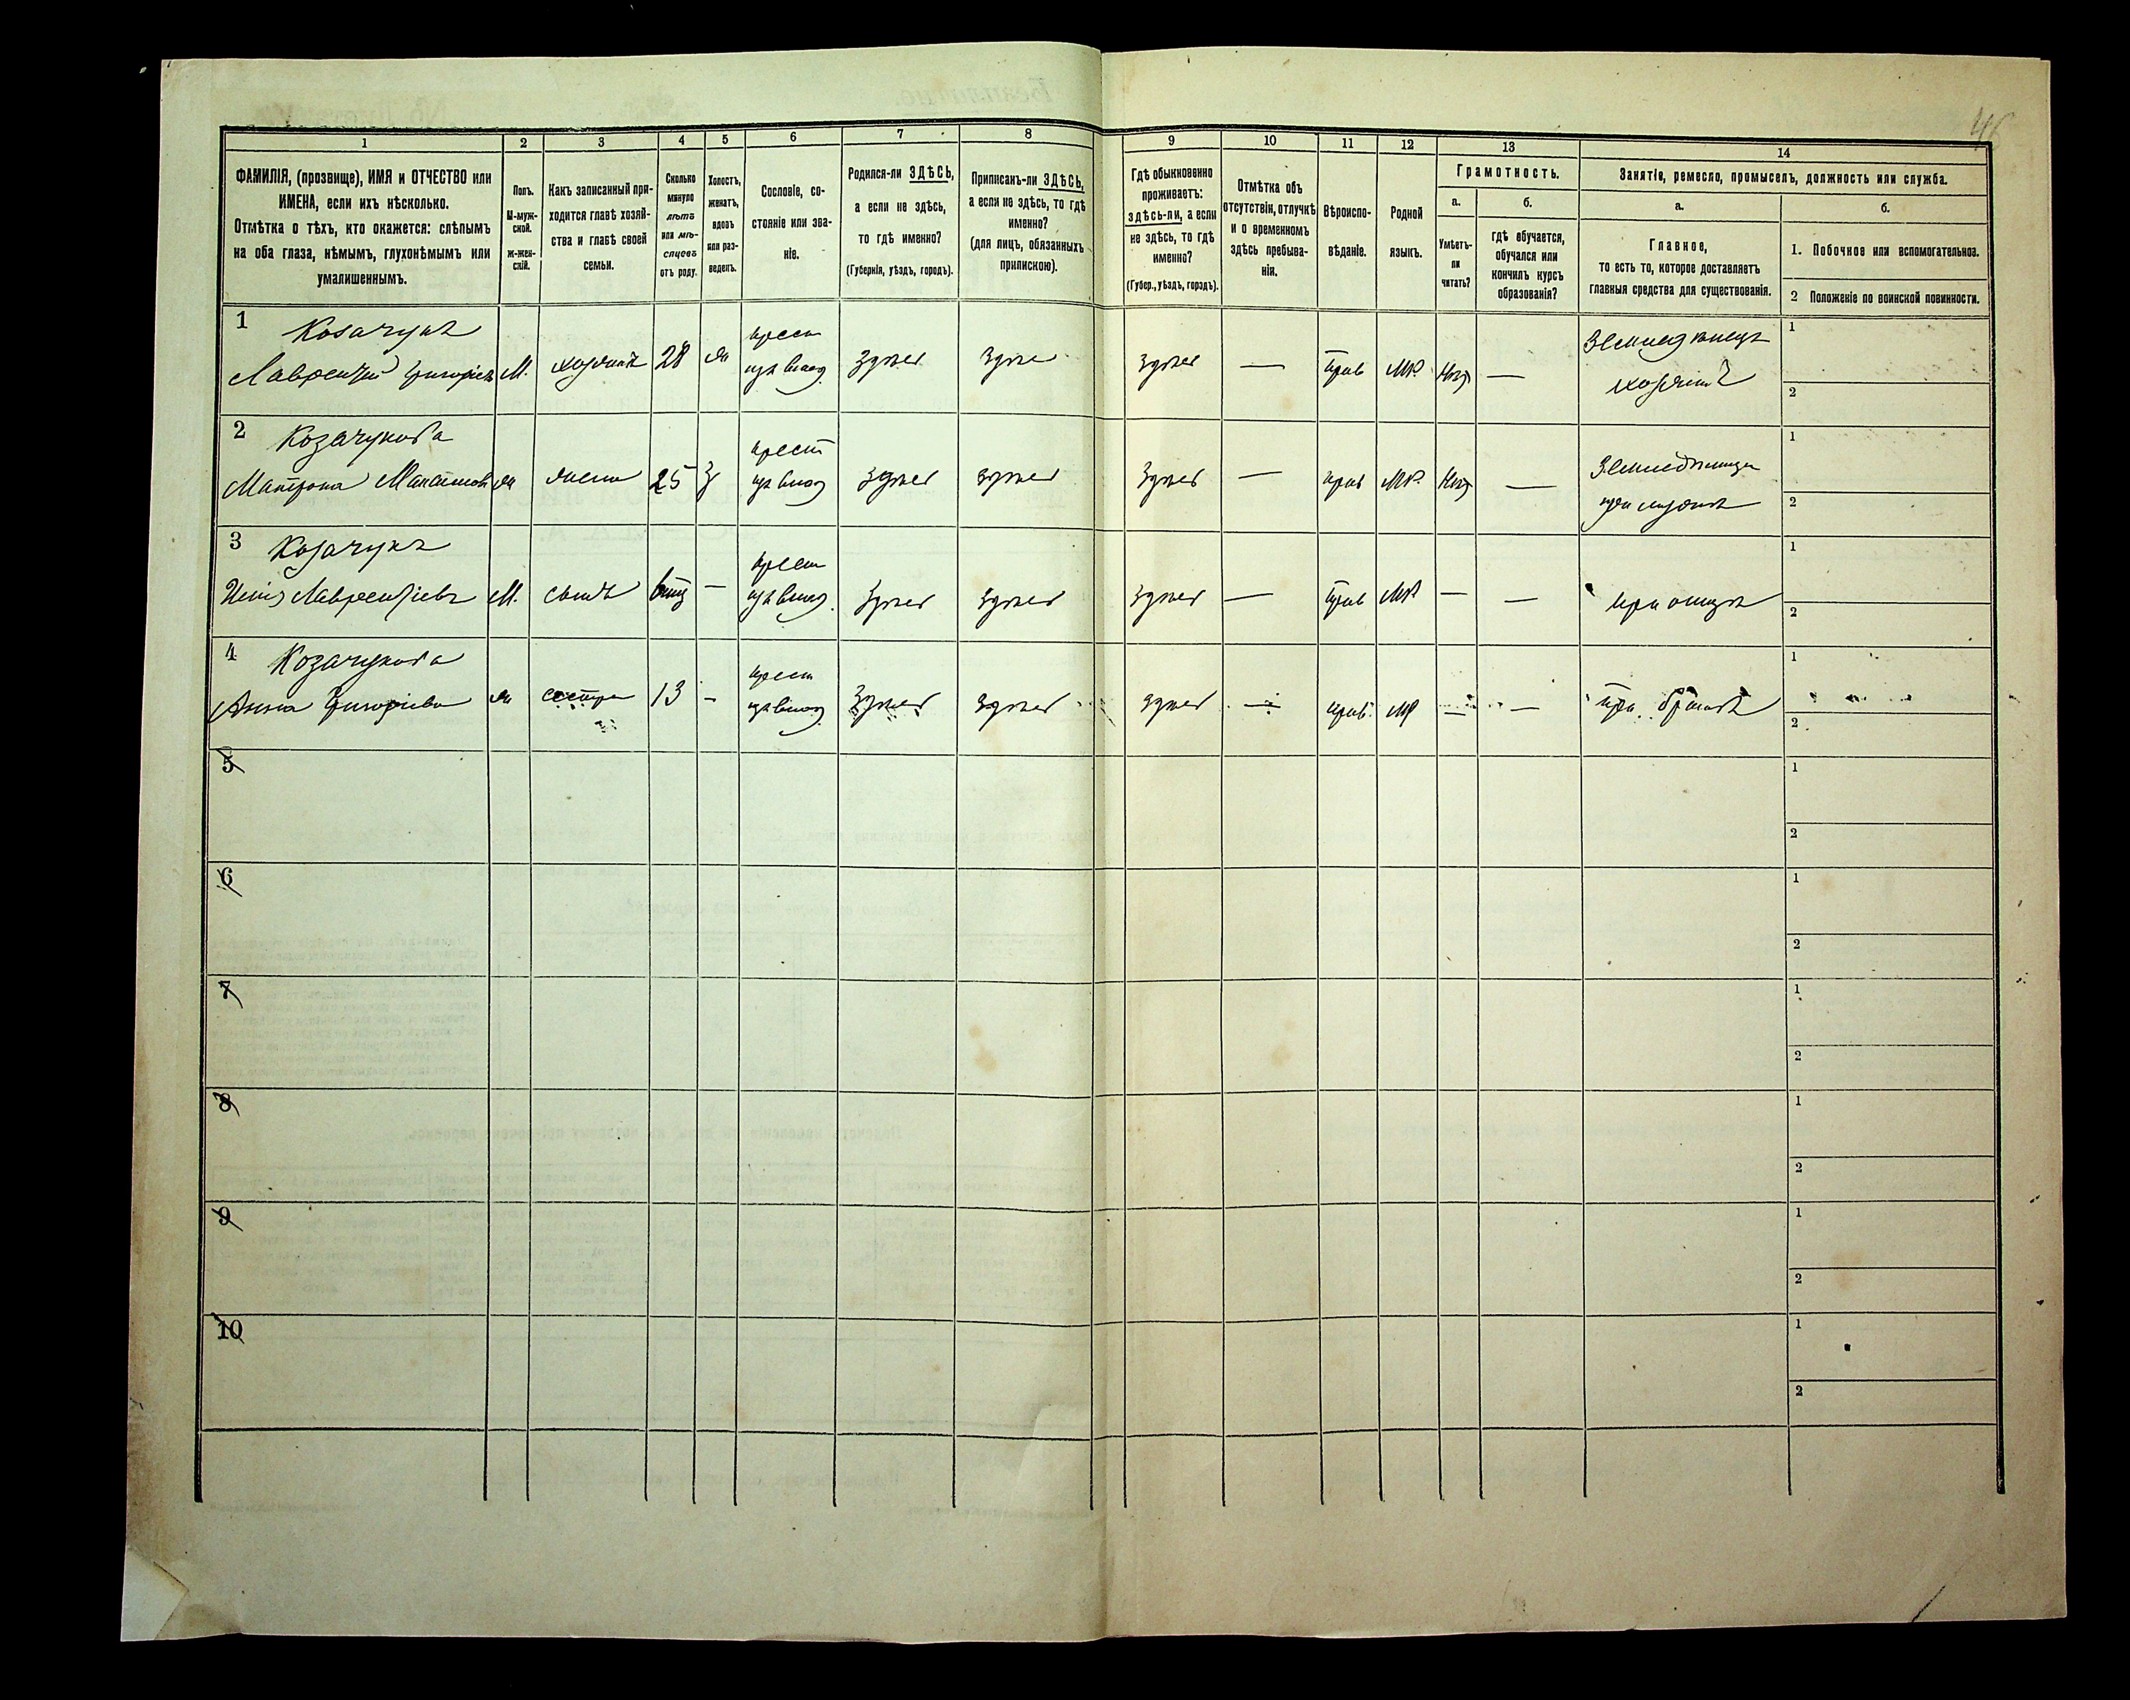 46
1 2 3 4 5 6 7 8 9 10 11 12 13 14
ФАМИЛІЯ, (прозвище), ИМЯ и ОТЧЕСТВО или
ИМЕНА, если ихъ нѣсколько.
Отмѣтка о тѣхъ, кто окажется: слѣпымъ
на оба глаза, нѣмымъ, глухонѣмымъ или
умалишеннымъ.
Полъ.
М-муж-
ской.
ж-жен-
скій.
Какъ записанный при-
ходится главѣ хозяй-
ства и главѣ своей
семьи.
Сколько
минуло
лѣтъ
или мѣ-
сяцевъ
отъ роду.
Холостъ,
женатъ,
вдовъ
или раз-
веденъ.
Сословіе, со-
стояніе или зва-
ніе.
Родился-ли ЗДѢСЬ,
а если не здѣсь,
то гдѣ именно?
(Губернія, уѣздъ, городъ).
Приписанъ-ли ЗДѢСЬ,
а если не здѣсь, то гдѣ
именно?
(для лицъ, обязанныхъ
припискою).
Гдѣ обыкновенно
проживаетъ:
здѣсь-ли, а если
не здѣсь, то гдѣ
именно?
(Губер., уѣздъ, городъ).
Отмѣтка объ
отсутствіи, отлучкѣ
и о временномъ
здѣсь пребыва-
ніи.
Вѣроиспо-
вѣданіе.
Родной
языкъ.
Грамотность.
а.
Умѣетъ-
ли
читать?
б.
гдѣ обучается,
обучался или
кончилъ курсъ
образованія?
Занятіе, ремесло, промыселъ, должность или служба.
а.
Главное,
то есть то, которое доставляетъ
главныя средства для существованія.
б.
1. Побочное или вспомогательное.
2 Положеніе по воинской повинности.
1 Козачукъ крест Земледѣлецъ 1
Лаврентій Григоріевъ М. хозяинъ 28 ж изъ влад. здѣсь здѣсь здѣсь — прав МР. нѣтъ — хозяинъ 2
2 Козачукова крест 1
Матрона Максимова ж жена 25 З изъ влад здѣсь здѣсь здѣсь — прав МР. нѣтъ — при мужѣ 2
3 Козачукъ крест 1
Лаврентіевъ М. сынъ — изъ влад. здѣсь здѣсь здѣсь — прав МР — — при отцѣ 2
4 Козачукова крест 1
Анна Григоріева ж сестра 13 - изъ влад. здѣсь здѣсь здѣсь — прав. МР — — при братѣ 2
5 1
2
6 1
2
7 1
2
8 1
2
9 1
2
10 1
2